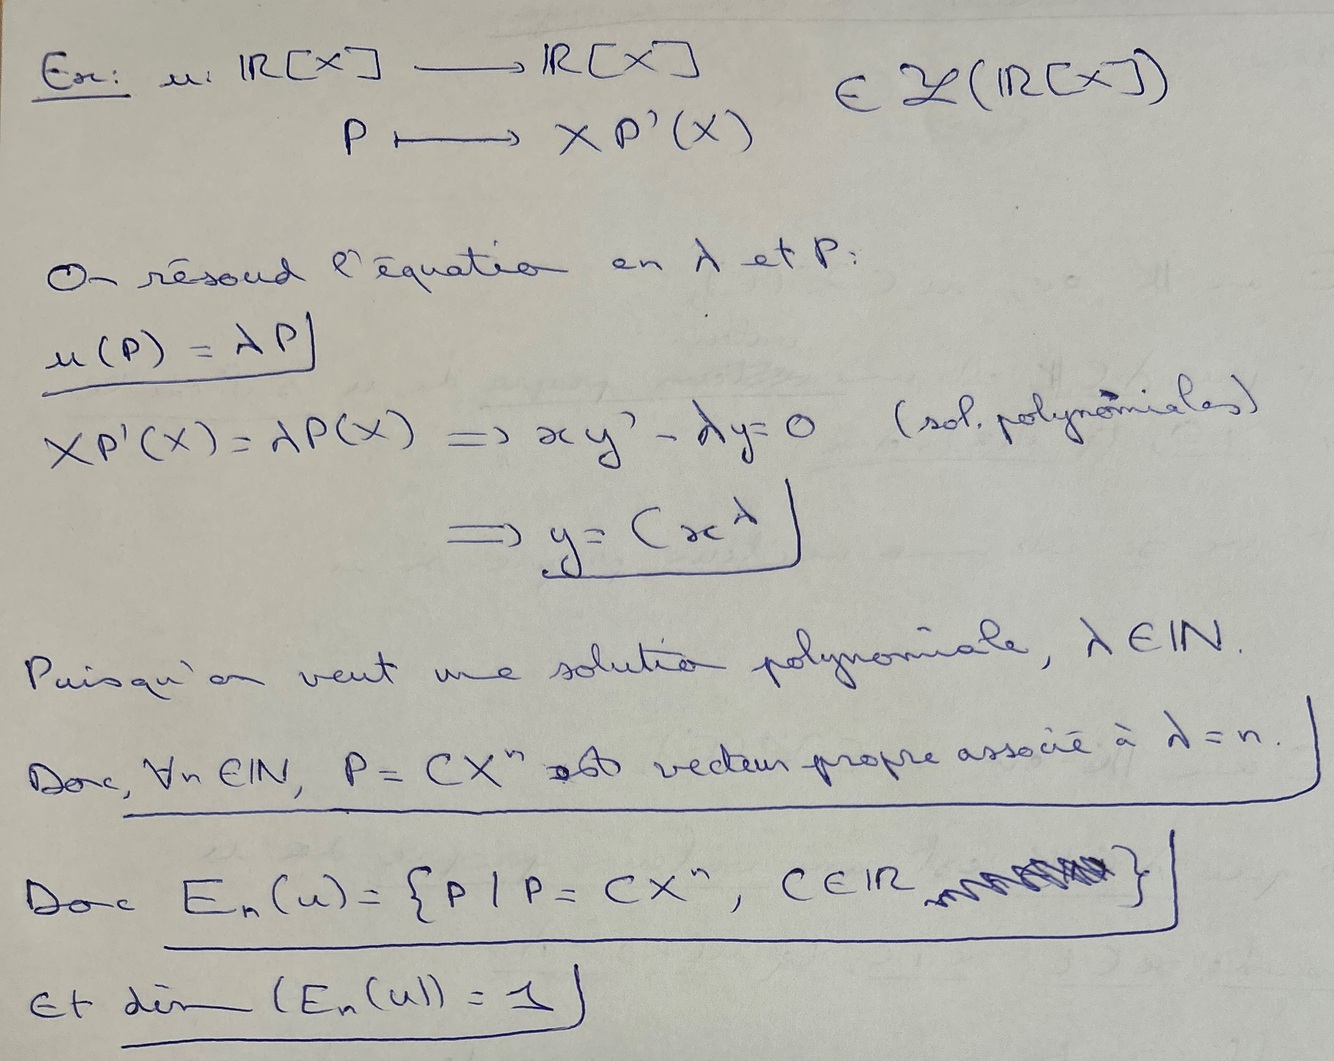 Ex: u: ℝ[X] ⟶ ℝ[X] ∈ ℒ(ℝ[X])
P ⟼ XP'(X)
On résoud l'équation en λ et P:
u(P) = λP
XP'(X) = λP(X) => xy' - λy = 0 (sol. polynômiales)
=> y = Cx^λ
Puisqu'on veut une solution polynomiale, λ ∈ ℕ.
Donc, ∀n ∈ ℕ, P = CX^n est vecteur propre associé à λ = n.
Donc E_n(u) = {P / P = CX^n, C ∈ ℝ}
Et dim (E_n(u)) = 1